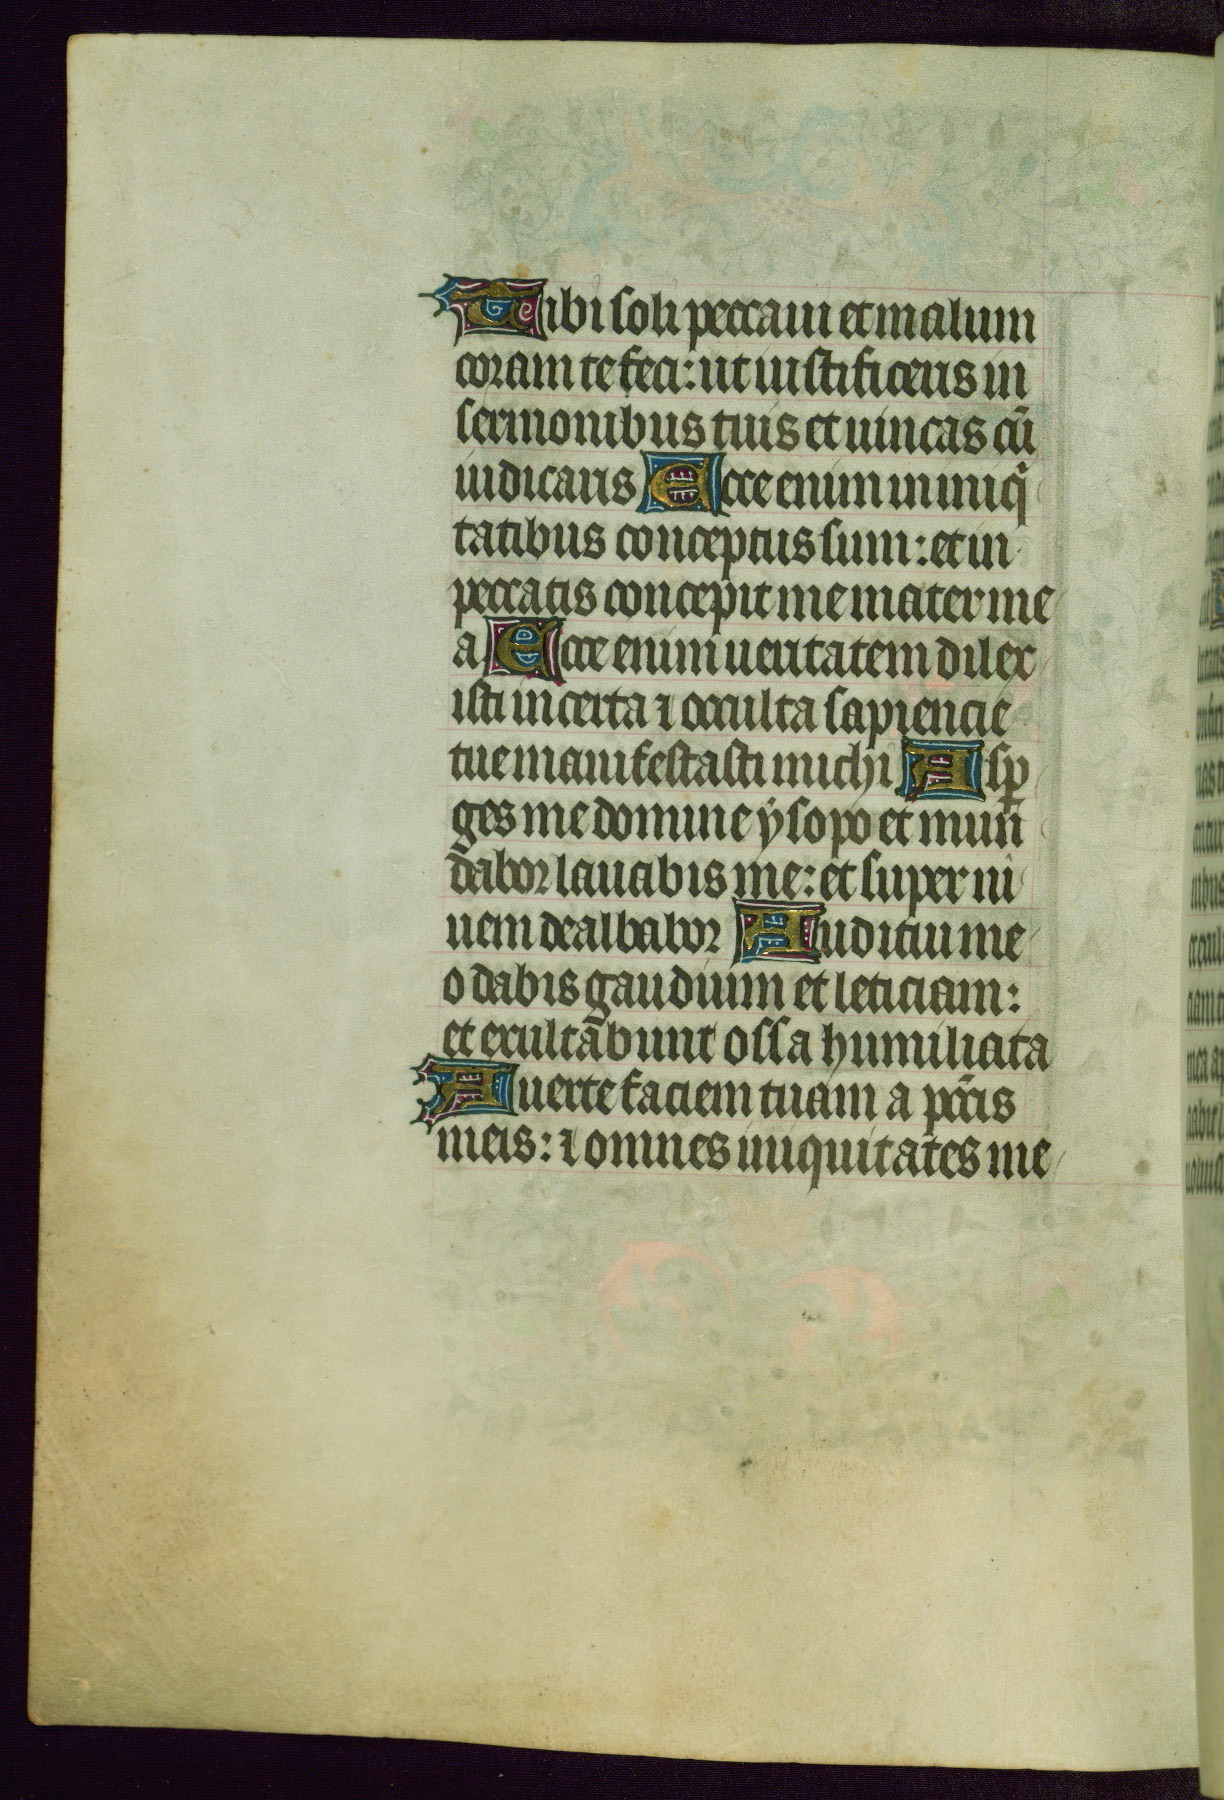 Tibi soli peccaui et malum
coram te feci: ut iustificeris in
sermonibus tuis et uincas cū
iudicaris Ecce enim in iniqͥ
tatibus conceptus sum: et in
peccatis concepit me mater me
a Ecce enim ueritatem dilex
isti incerta ⁊ occulta sapiencie
tue manifestasti michi Asꝑ
ges me domine ysopo et mun
dabor lauabis me: et super ni
uem dealbabor Auditui me
o dabis gaudium et leticiam:
et exultabunt ossa humiliata
Auerte faciem tuam a pctīs
meis: ⁊ omnes iniquitates me